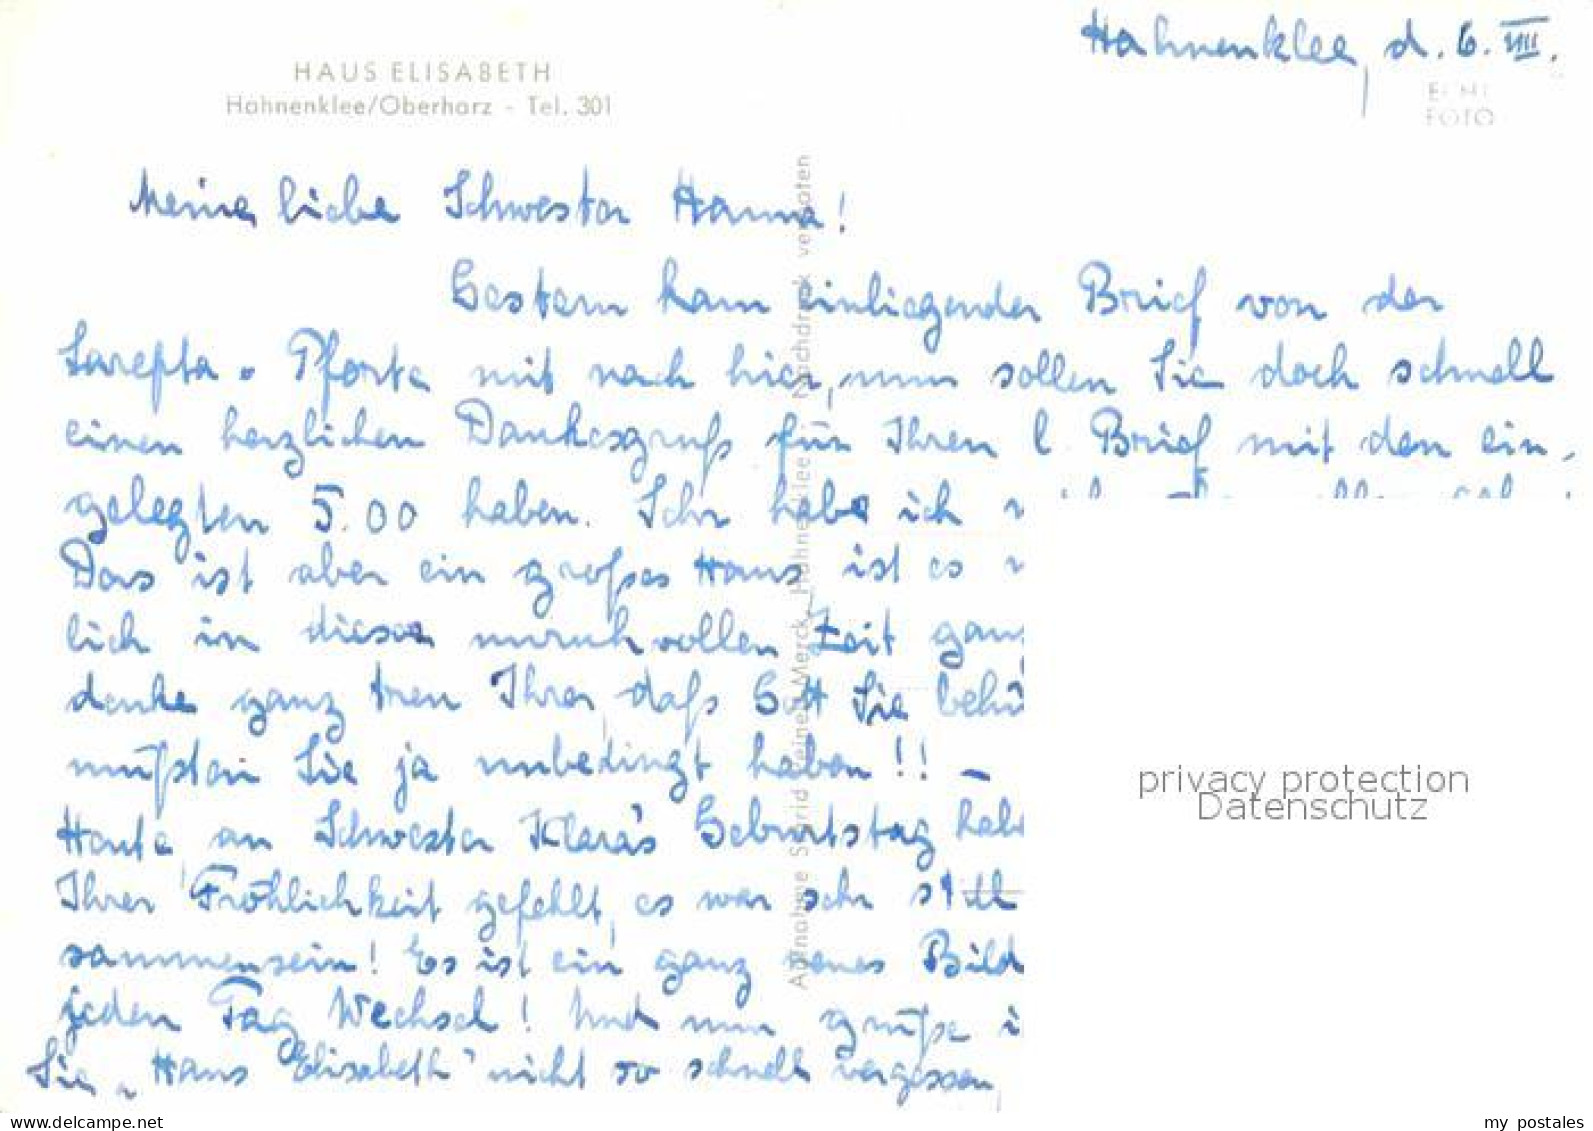 HAUS ELISABETH
Hahnenklee/Oberharz - Tel. 301
Hahnenklee, d. 6. VIII.
ECHT
FOTO
Meine liebe Schwester Hanna!
Gestern kam einliegender Brief von der
Sarepta-Pforte mit nach hier, nun sollen Sie doch schnell
einen herzlichen Dankesgruß für Ihren l. Brief mit den ein-
gelegten 5.00 haben. Sehr habe ich
Das ist aber ein großes Haus ist es
lich in dieser unruhvollen Zeit ganz
denke ganz treu Ihrer, daß Gott Sie behü
mußten Sie ja unbedingt haben!! -
Heute, an Schwester Klara's Geburtstag hab
Ihrer Fröhlichkeit gefehlt, es war sehr still
sammensein! Es ist ein ganz neues Bild
jeden Tag Wechsel! Und nun grüße i
Sie, "Haus Elisabeth" nicht so schnell vergessen,
Aufnahme Sigrid Reinert-Merck, Hahnenklee Nachdruck verboten
privacy protection
Datenschutz
oldthing.com
my postales